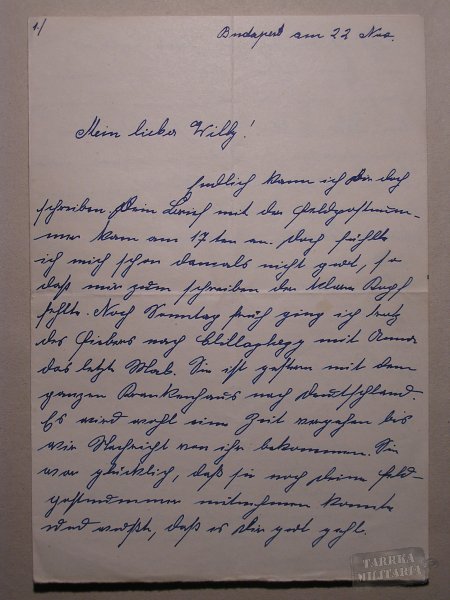 1/
Budapest am 22 Nov.
Mein lieber Willy!
Endlich kann ich Dir doch
schreiben. Dein Brief mit der Feldpostnum-
mer kam am 17ten an. Doch fühlte
ich mich schon damals nicht gut, so
daß mir zum schreiben der klare Kopf
fehlte. Noch Sonntag früh ging ich trotz
des Fiebers nach mit Anna
das letzte Mal. Sie ist gestern mit dem
ganzen Krankenhaus nach Deutschland.
Es wird wohl eine Zeit vergehen bis
wir Nachricht von ihr bekommen. Sie
war glücklich, daß sie noch deine Feld-
postnummer mitnehmen konnte
und wußte, daß es Dir gut geht.
TARRKA
MILITARIA